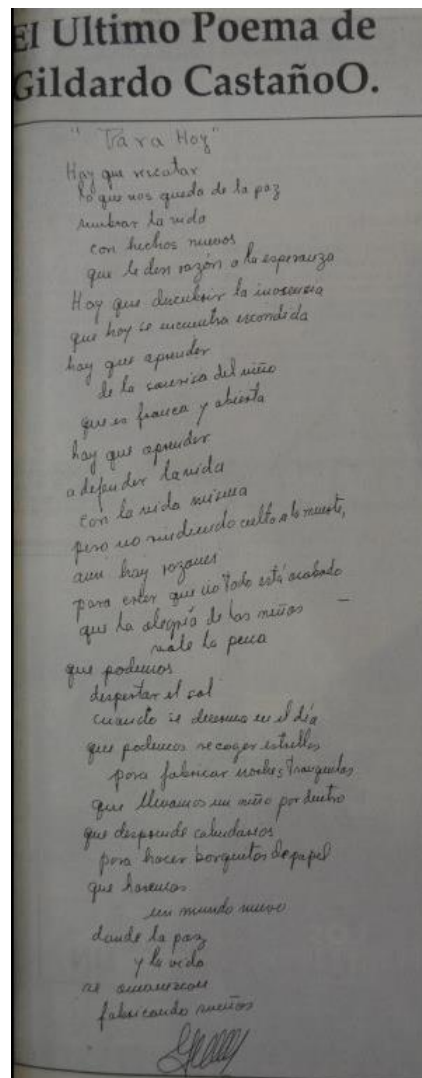 El Ultimo Poema de
Gildardo CastañoO.
"Para Hoy"
Hay que rescatar
lo que nos queda de la paz
sembrar la vida
con hechos nuevos
que le den razón a la esperanza
Hay que descubrir la inocencia
que hoy se encuentra escondida
hay que aprender
de la sonrisa del niño
que es franca y abierta
hay que aprender
a defender la vida
con la vida misma
pero no rindiendo culto a la muerte,
aun hay razones
para creer que no todo está acabado
que la alegría de los niños
vale la pena
que podemos
despertar el sol
cuando se duerma en el día
que podemos recoger estrellas
para fabricar noches tranquilas
que llevamos un niño por dentro
que desprende calendarios
para hacer barquitos de papel
que haremos
un mundo nuevo
donde la paz
y la vida
se amanezcan
fabricando sueños